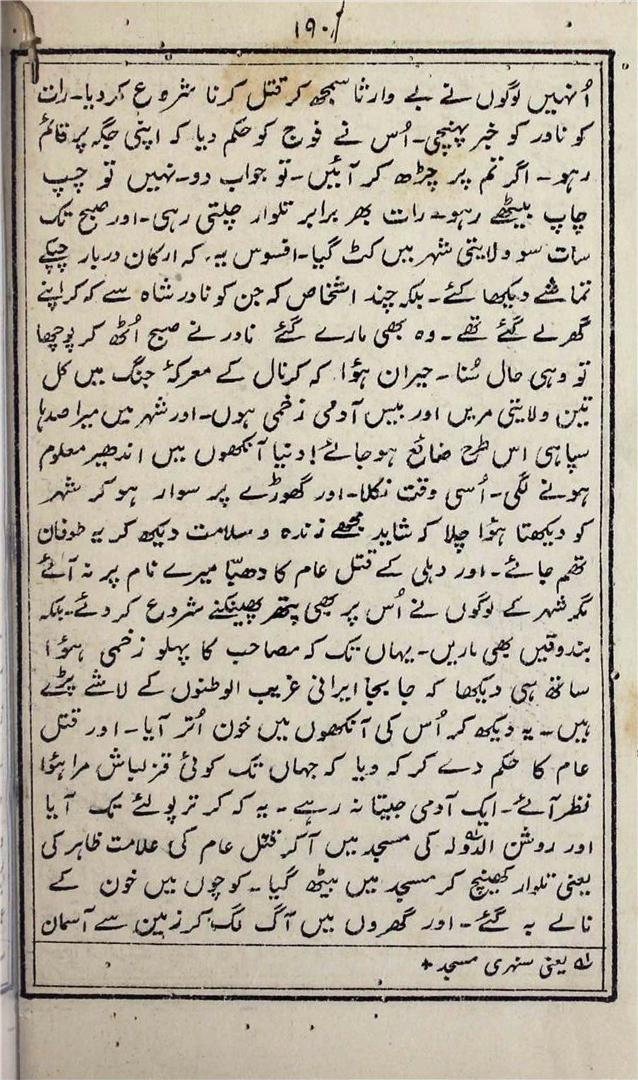 ۱۹۰
اُنہیں لوگوں نے بے وارثا سمجھ کر قتل کرنا شروع کردیا۔ رات
کو نادر کو خبر پہنچی۔ اُس نے فوج کو حکم دیا کہ اپنی جگہ پر قائم
رہو۔ اگر تم پر چڑھ کر آئیں۔ تو جواب دو۔ نہیں تو چپ
چاپ بیٹھے رہو۔ رات بھر برابر تلوار چلتی رہی۔ اور صبح تک
سات سو ولایتی شہر میں کٹ گیا۔ افسوس یہ کہ ارکان دربار چپکے
تماشے دیکھا کئے۔ بلکہ چند اشخاص کہ جن کو نادر شاہ سے کہ کر اپنے
گھر لے گئے تھے۔ وہ بھی مارے گئے نادر نے صبح اُٹھ کر پوچھا
تو وہی حال سُنا۔ حیران ہؤا کہ کرنال کے معرکۂ جنگ میں کل
تین ولایتی مریں اور بیس آدمی زخمی ہوں۔ اور شہر میں میرا صدہا
سپاہی اس طرح ضائع ہو جائے! دنیا آنکھوں میں اندھیر معلوم
ہونے لگی۔ اُسی وقت نکلا۔ اور گھوڑے پر سوار ہو کر شہر
کو دیکھتا ہؤا چلا کہ شاید مجھے زندہ و سلامت دیکھ کر یہ طوفان
تھم جائے۔ اور دہلی کے قتل عام کا دھبّا میرے نام پر نہ آئے
مگر شہر کے لوگوں نے اُس پر بھی پتھر پھینکنے شروع کر دئے۔ بلکہ
بندوقیں بھی ماریں۔ یہاں تک کہ مصاحب کا پہلو زخمی ہؤا
ساتھ ہی دیکھا کہ جا بجا ایرانی غریب الوطنوں کے لاشے پڑے
ہیں۔ یہ دیکھ کر اُس کی آنکھوں میں خون اُتر آیا۔ اور قتل
عام کا حکم دے کر کہ دیا کہ جہاں تک کوئی قزلباش مرا ہؤا
نظر آئے۔ ایک آدمی جیتا نہ رہے۔ یہ کہ کر ترپولئے تک آیا
اور روشن الدّولہ کی مسجد میں آکر قتل عام کی علامت ظاہر کی
یعنی تلوار کھینچ کر مسجد میں بیٹھ گیا۔ کوچوں میں خون کے
نالے بہ گئے۔ اور گھروں میں آگ لگ کر زمین سے آسمان
لہ یعنی سنہری مسجد +